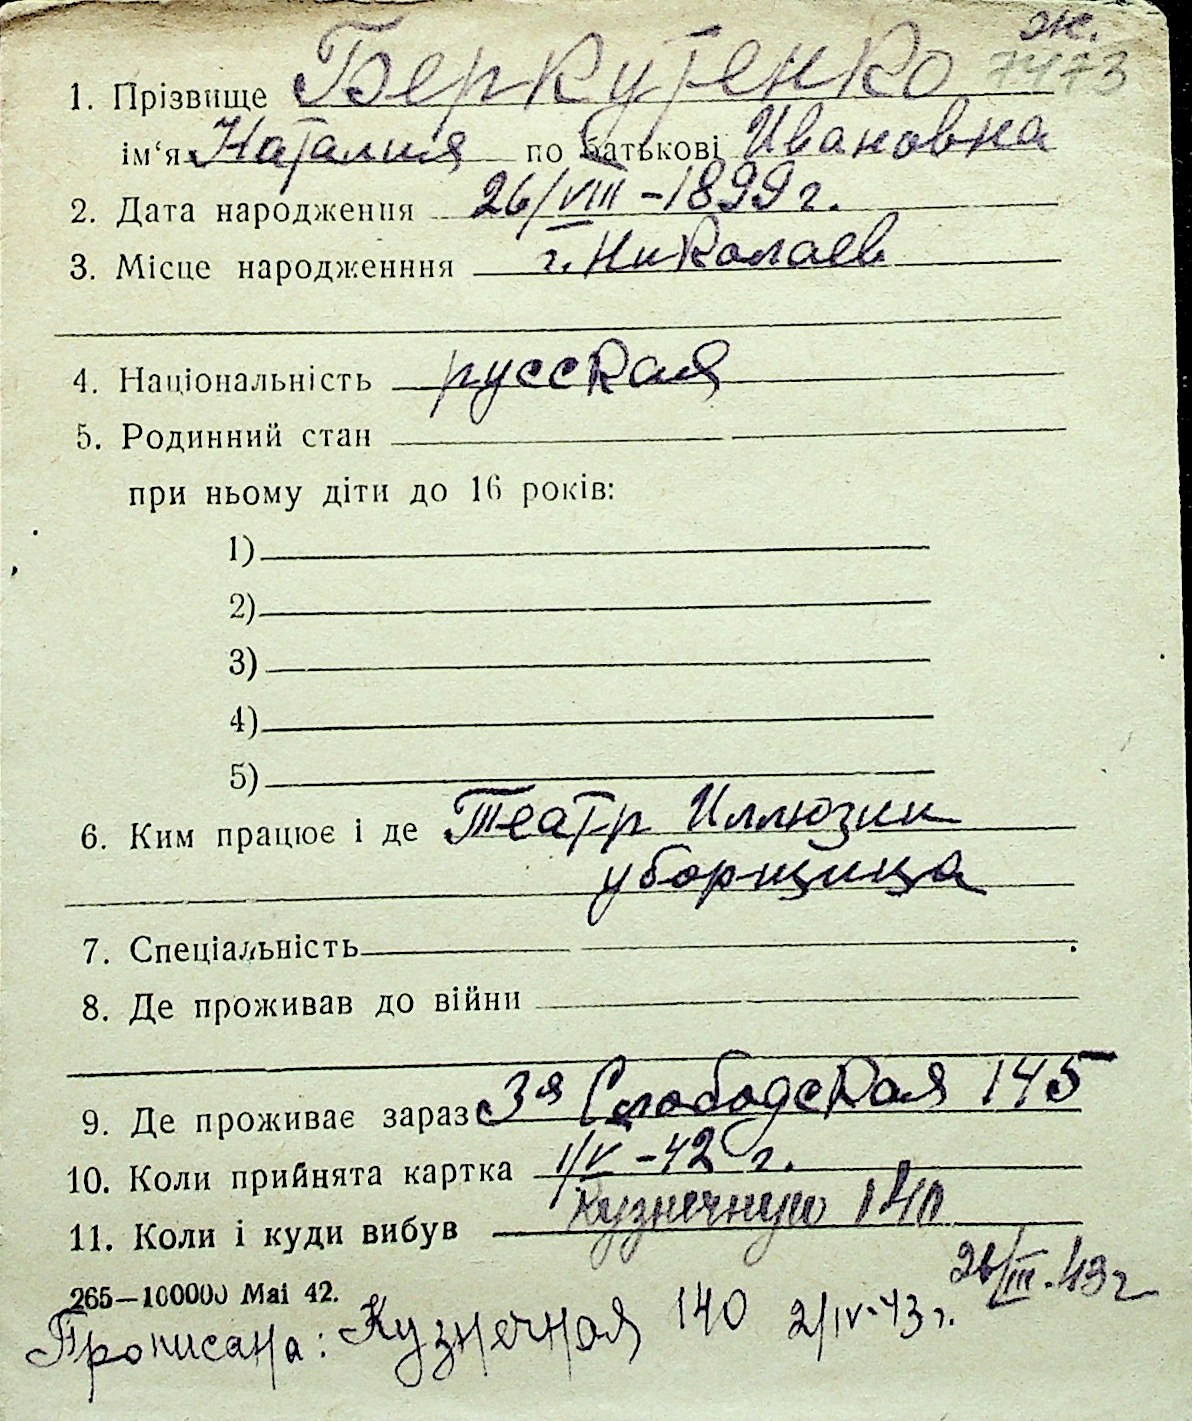 ж.
1. Прізвище Беркутенко 7473
ім‘я Наталия по батькові Ивановна
2. Дата народження 26/VIII -1899 г.
3. Місце народженння г. Николаев
4. Національність русская
5. Родинний стан
при ньому діти до 16 років:
1)
2)
3)
4)
5)
6. Ким працює і де Театр Иллюзии
уборщица
7. Спеціальність
8. Де проживав до війни
9. Де проживає зараз 3я Слободская 145
10. Коли прийнята картка 1/V -42 г.
11. Коли і куди вибув Кузнечную 140
26/III-43 г
265—100000 Mai 42.
Прописана: Кузнечная 140 2/IV-43 г.